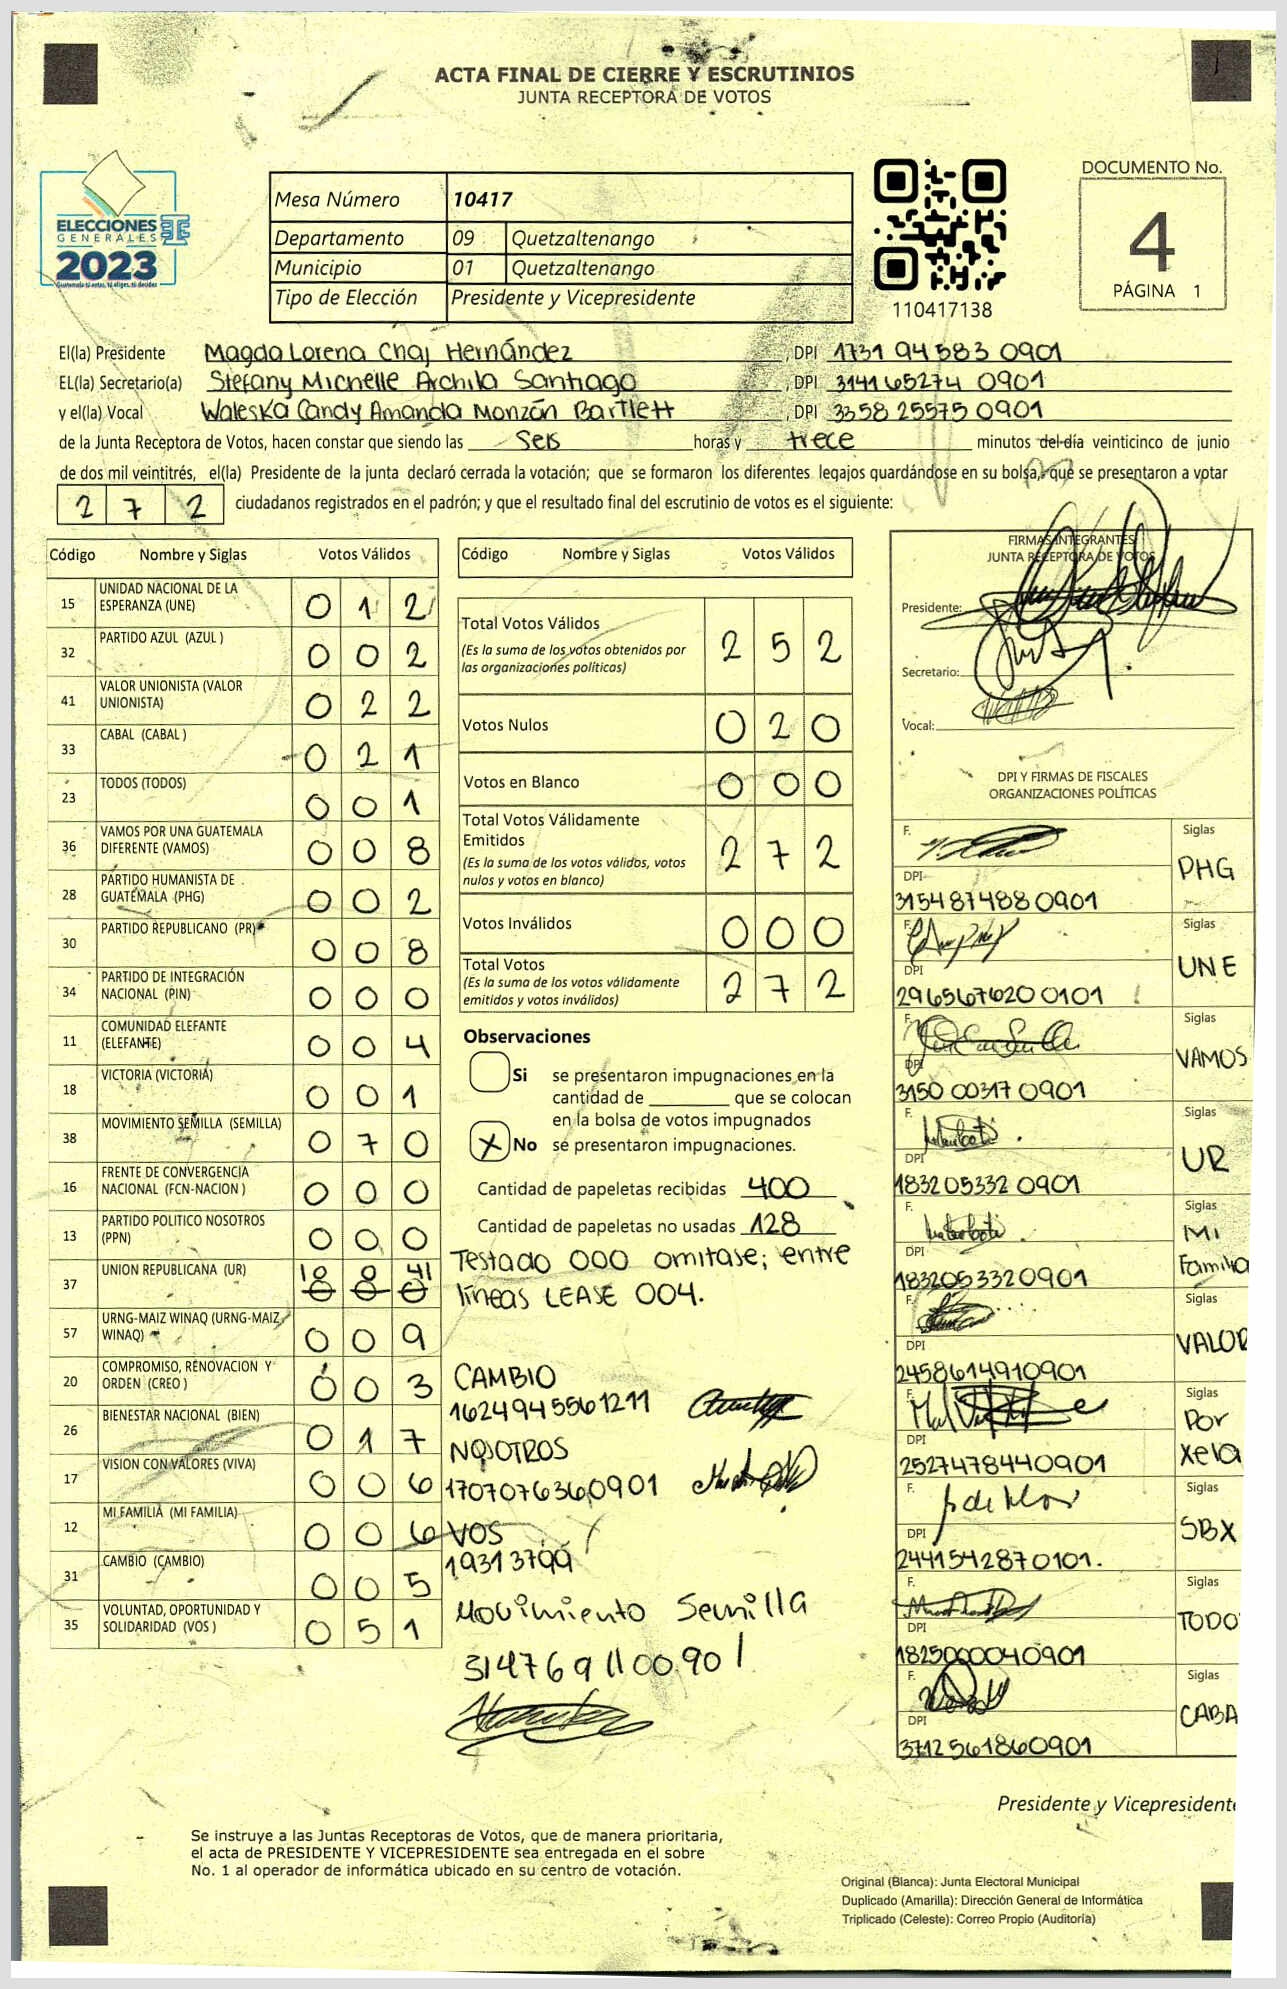 ACTA FINAL DE CIERRE Y ESCRUTINIOS
JUNTA RECEPTORA DE VOTOS
ELECCIONES
GENERALES
2023
Guatemala tú votas, tú eliges, tú decides
Mesa Número 10417
Departamento 09 Quetzaltenango
Municipio 01 Quetzaltenango
Tipo de Elección Presidente y Vicepresidente
110417138
DOCUMENTO No.
4
PÁGINA 1
El(la) Presidente Magda Lorena Chaj Hernández, DPI 1731 94583 0901
EL(la) Secretario(a) Stefany Michelle Archila Santiago, DPI 3141 65274 0901
y el(la) Vocal Waleska Candy Amanda Monzón Bartlett, DPI 3358 25575 0901
de la Junta Receptora de Votos, hacen constar que siendo las seis horas y trece minutos del día veinticinco de junio
de dos mil veintitrés, el(la) Presidente de la junta declaró cerrada la votación; que se formaron los diferentes legajos guardándose en su bolsa, que se presentaron a votar
2 7 2 ciudadanos registrados en el padrón; y que el resultado final del escrutinio de votos es el siguiente:
Código Nombre y Siglas Votos Válidos
15 UNIDAD NACIONAL DE LA ESPERANZA (UNE) 0 1 2
32 PARTIDO AZUL (AZUL ) 0 0 2
41 VALOR UNIONISTA (VALOR UNIONISTA) 0 2 2
33 CABAL (CABAL ) 0 2 1
23 TODOS (TODOS) 0 0 1
36 VAMOS POR UNA GUATEMALA DIFERENTE (VAMOS) 0 0 8
28 PARTIDO HUMANISTA DE GUATEMALA (PHG) 0 0 2
30 PARTIDO REPUBLICANO (PR) 0 0 8
34 PARTIDO DE INTEGRACIÓN NACIONAL (PIN) 0 0 0
11 COMUNIDAD ELEFANTE (ELEFANTE) 0 0 4
18 VICTORIA (VICTORIA) 0 0 1
38 MOVIMIENTO SEMILLA (SEMILLA) 0 7 0
16 FRENTE DE CONVERGENCIA NACIONAL (FCN-NACION ) 0 0 0
13 PARTIDO POLITICO NOSOTROS (PPN) 0 0 0
37 UNION REPUBLICANA (UR) 0 0 0
57 URNG-MAIZ WINAQ (URNG-MAIZ WINAQ) 0 0 9
20 COMPROMISO, RENOVACION Y ORDEN (CREO ) 0 0 3
26 BIENESTAR NACIONAL (BIEN) 0 1 7
17 VISION CON VALORES (VIVA) 0 0 6
12 MI FAMILIA (MI FAMILIA) 0 0 6
31 CAMBIO (CAMBIO) 0 0 5
35 VOLUNTAD, OPORTUNIDAD Y SOLIDARIDAD (VOS ) 0 5 1
Código Nombre y Siglas Votos Válidos
Total Votos Válidos 2 5 2
(Es la suma de los votos obtenidos por
las organizaciones políticas)
Votos Nulos 0 2 0
Votos en Blanco 0 0 0
Total Votos Válidamente
Emitidos 2 7 2
(Es la suma de los votos válidos, votos
nulos y votos en blanco)
Votos Inválidos 0 0 0
Total Votos 2 7 2
(Es la suma de los votos válidamente
emitidos y votos inválidos)
Observaciones
Si se presentaron impugnaciones en la
cantidad de ________ que se colocan
en la bolsa de votos impugnados
X No se presentaron impugnaciones.
Cantidad de papeletas recibidas 400
Cantidad de papeletas no usadas 128
Testado 000 omitase; entre
líneas LEASE 004.
CAMBIO
1624945561211
NOSOTROS
1707076360901
VOS
19313799
Movimiento Semilla
3147691100901
FIRMAS INTEGRANTES
JUNTA RECEPTORA DE VOTOS
Presidente:
Secretario:
Vocal:
DPI Y FIRMAS DE FISCALES
ORGANIZACIONES POLÍTICAS
F. Siglas
PHG
DPI
3154874880901
F. Siglas
UNE
DPI
2965676200101
F. Siglas
VAMOS
DPI
3150003170901
F. Siglas
UR
DPI
1832053320901
F. Siglas
Mi
Familia
DPI
1832053320901
F. Siglas
VALOR
DPI
2458614910901
F. Siglas
Por
Xela
DPI
2527478440901
F. Siglas
SBX
DPI
2441542870101.
F. Siglas
TODO
DPI
1825000040901
F. Siglas
CABA
DPI
3712561860901
Presidente y Vicepresidente
Se instruye a las Juntas Receptoras de Votos, que de manera prioritaria,
el acta de PRESIDENTE Y VICEPRESIDENTE sea entregada en el sobre
No. 1 al operador de informática ubicado en su centro de votación.
Original (Blanca): Junta Electoral Municipal
Duplicado (Amarilla): Dirección General de Informática
Triplicado (Celeste): Correo Propio (Auditoría)